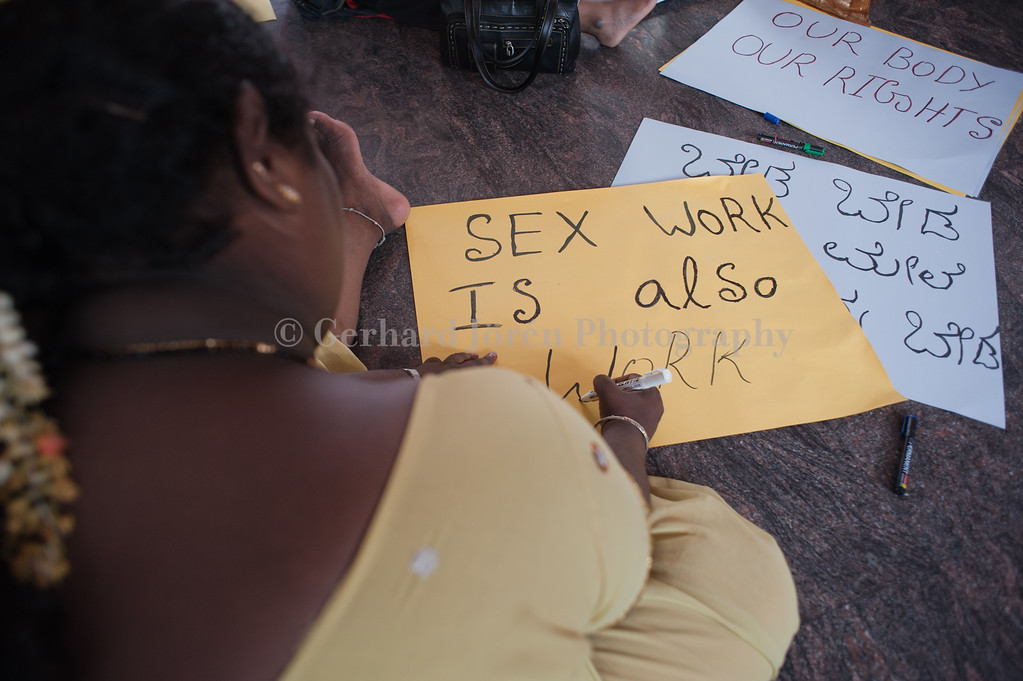 OUR BODY
OUR RIGHTS
ಬೇಡ ಬೇಡ
ಬೇಡ
SEX WORK
IS also
WORK
© Gerhard Jören Photography